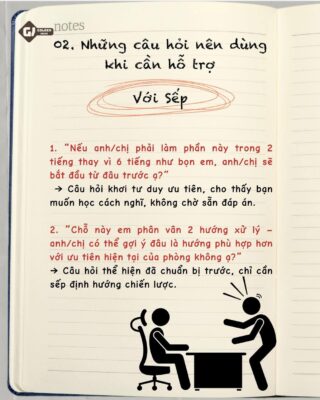 GI GOLDEN notes
02. Những câu hỏi nên dùng
khi cần hỗ trợ
Với Sếp
1. "Nếu anh/chị phải làm phần này trong 2
tiếng thay vì 6 tiếng như bọn em, anh/chị sẽ
bắt đầu từ đâu trước ạ?"
→ Câu hỏi khơi tư duy ưu tiên, cho thấy bạn
muốn học cách nghĩ, không chờ sẵn đáp án.
2. "Chỗ này em phân vân 2 hướng xử lý –
anh/chị có thể gợi ý đâu là hướng phù hợp hơn
với ưu tiên hiện tại của phòng không ạ?"
→ Câu hỏi thể hiện đã chuẩn bị trước, chỉ cần
sếp định hướng chiến lược.